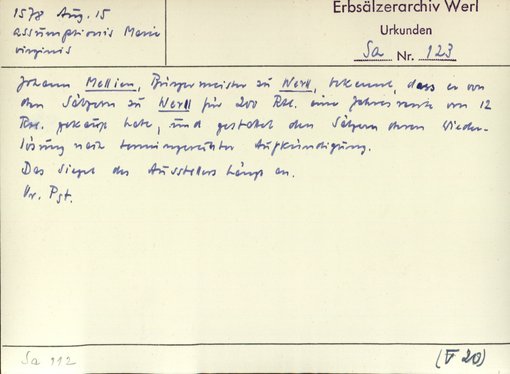 1578 Aug. 15
assumptionis Marie
virginis
Erbsälzerarchiv Werl
Urkunden
Sa Nr. 123
Johann Mellien, Bürgermeister zu Werll, bekennt, dass er von
den Sälzern zu Werll für 200 Rtl. eine Jahresrente von 12
Rtl. gekauft habe, und gestattet den Sälzern deren Wieder-
lösung nach termingerechter Aufkündigung.
Das Siegel des Ausstellers hängt an.
Or. Pgt.
Sa 112
(V 20)